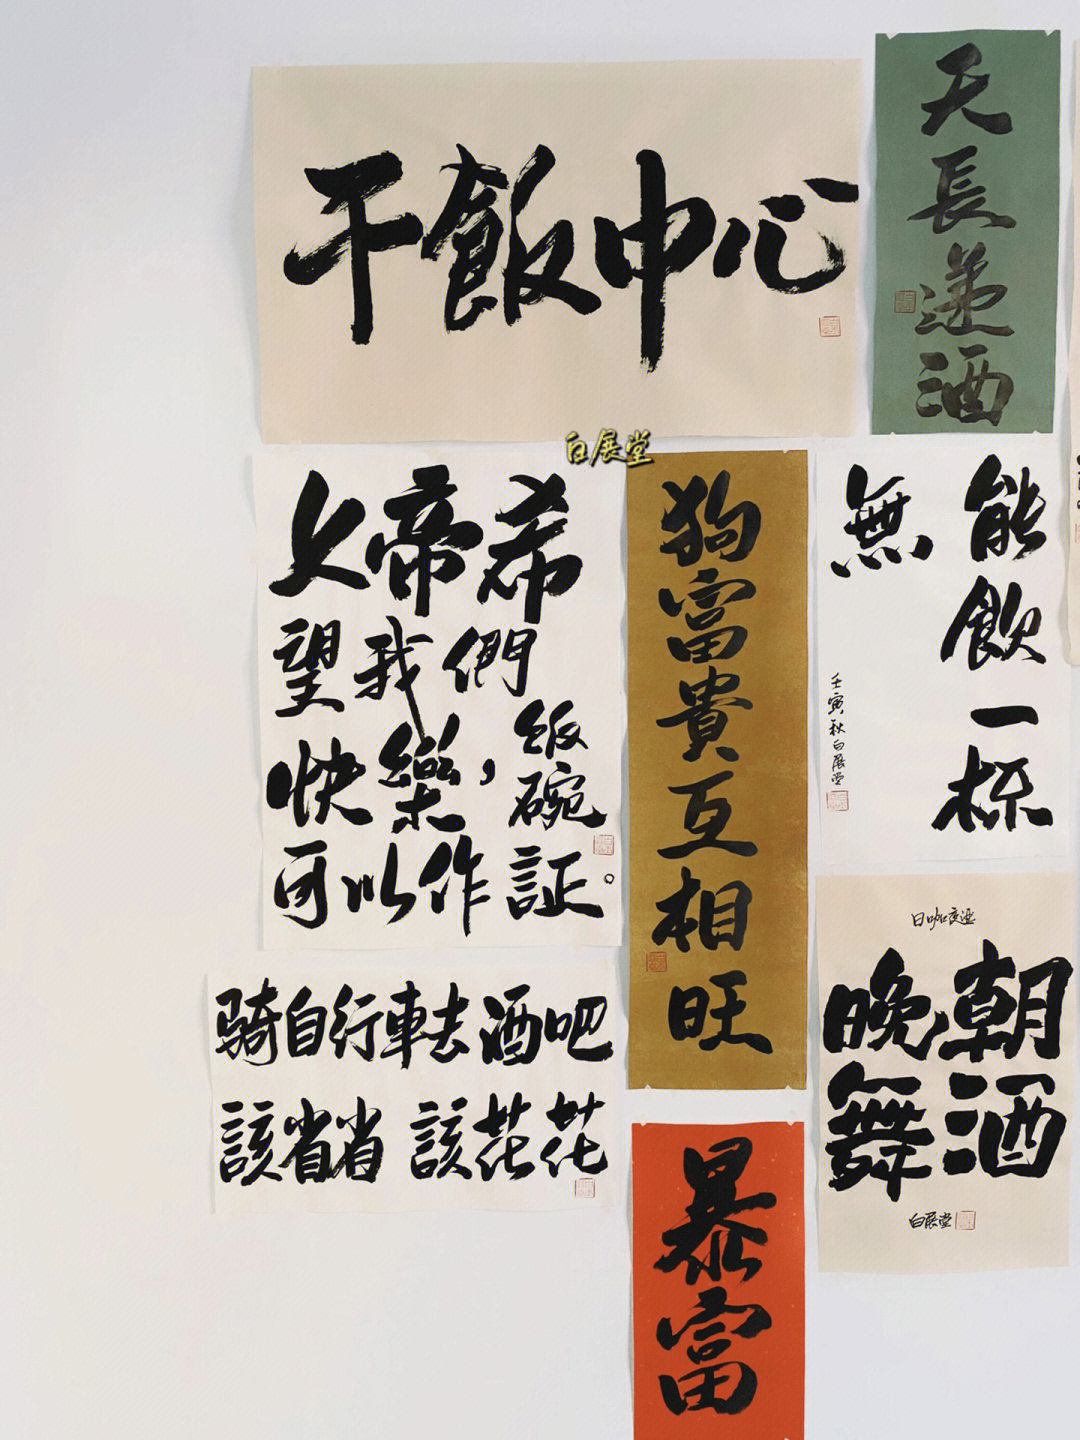 干飯中心
天長递酒
白展堂
上帝希
望我們
快樂，飯碗
可以作証。
狗富貴互相旺
能飲一杯
無
壬寅秋白展堂
骑自行車去酒吧
該省省 該花花
日咖夜酒
朝酒
晚舞
白展堂
暴富